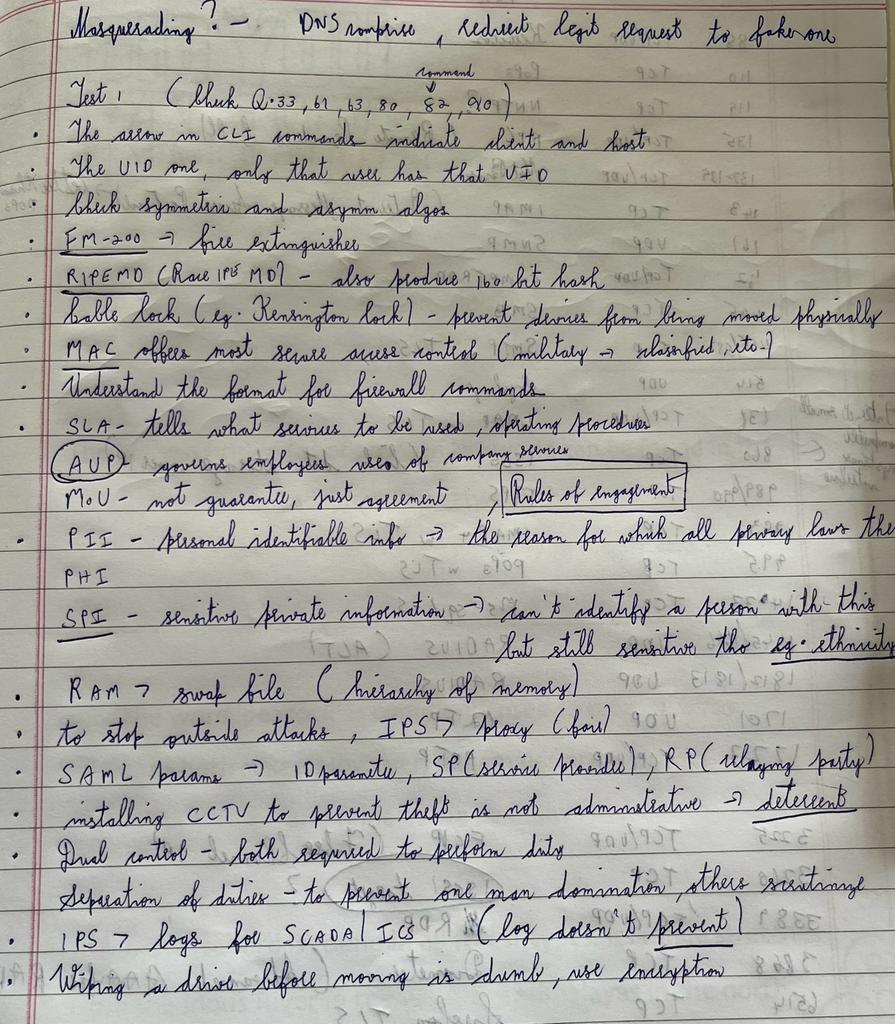 Masquerading? - DNS comprise, redirect legit request to fake one
command
Test 1 (Check Q.33, 61, 63, 80, 82, 90)
• The arrow in CLI commands indicate client and host
• The UID one, only that user has that UID
• Check symmetric and asymm algos
• FM-200 → fire extinguisher
• RIPEMD (Race IPE MD) - also produce 160 bit hash
• Cable lock (eg. Kensington lock) - prevent devices from being moved physically
• MAC offers most secure access control (military → classified, etc.)
• Understand the format for firewall commands
• SLA - tells what services to be used, operating procedures
AUP - governs employees use of company services
MoU - not guarantee, just agreement, Rules of engagement
• PII - personal identifiable info → the reason for which all privacy laws the
PHI
SPI - sensitive private information → can't identify a person with this
but still sensitive tho eg. ethnicity
• RAM > swap file (hierarchy of memory)
• to stop outside attacks, IPS > proxy (fair)
• SAML params → ID parameter, SP (service provider), RP (relaying party)
• installing CCTV to prevent theft is not administrative → deterrent
• Dual control - both required to perform duty
Separation of duties - to prevent one man domination, others scrutinize
• IPS > logs for SCADA/ICS (log doesn't prevent)
• Wiping a drive before moving is dumb, use encryption